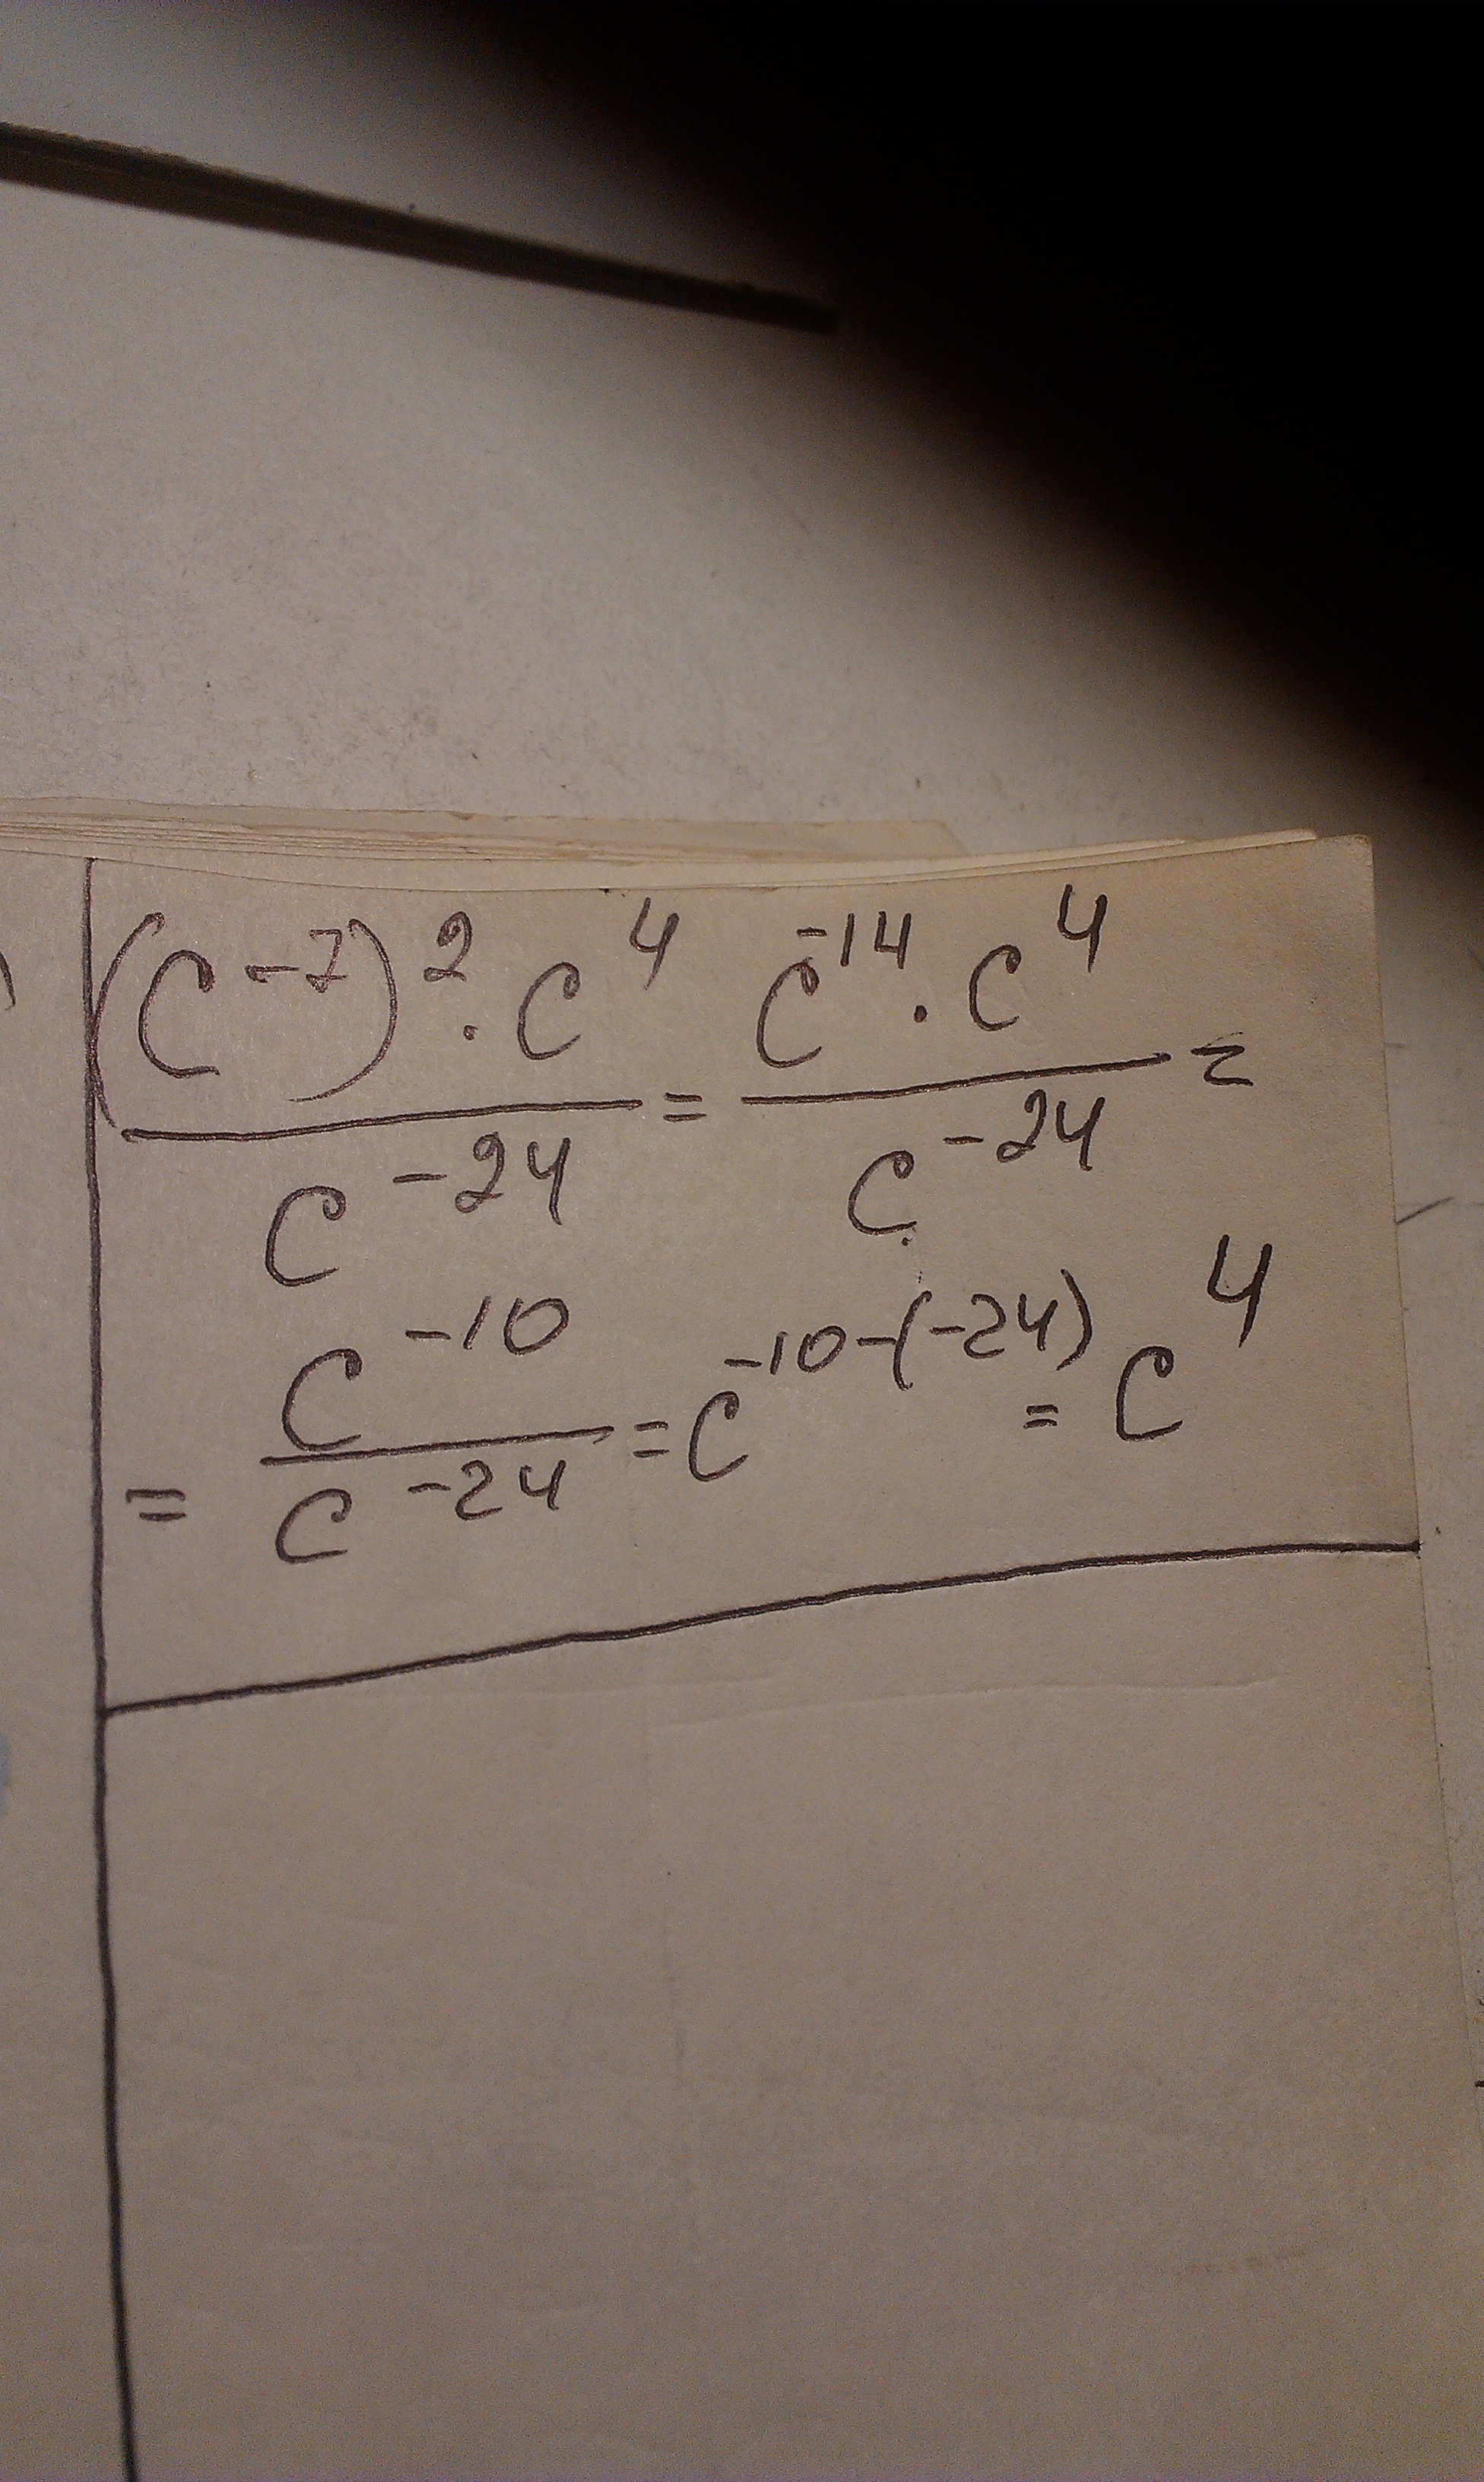 (c^-7)^2 · c^4 / c^-24 = c^-14 · c^4 / c^-24 =
= c^-10 / c^-24 = c^-10-(-24) = c^4